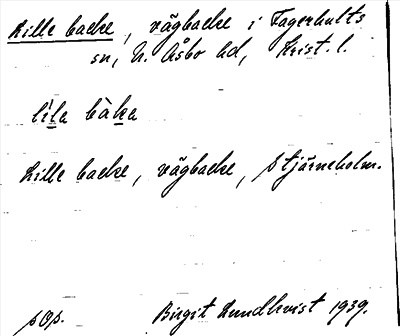 Lille backe, vägbacke i Fagerhults
sn, N. Åsbo hd, Krist. l.
lila bàka
Lille backe, vägbacke, Stjärneholm.
pOp. Birgit Lundkvist 1939.